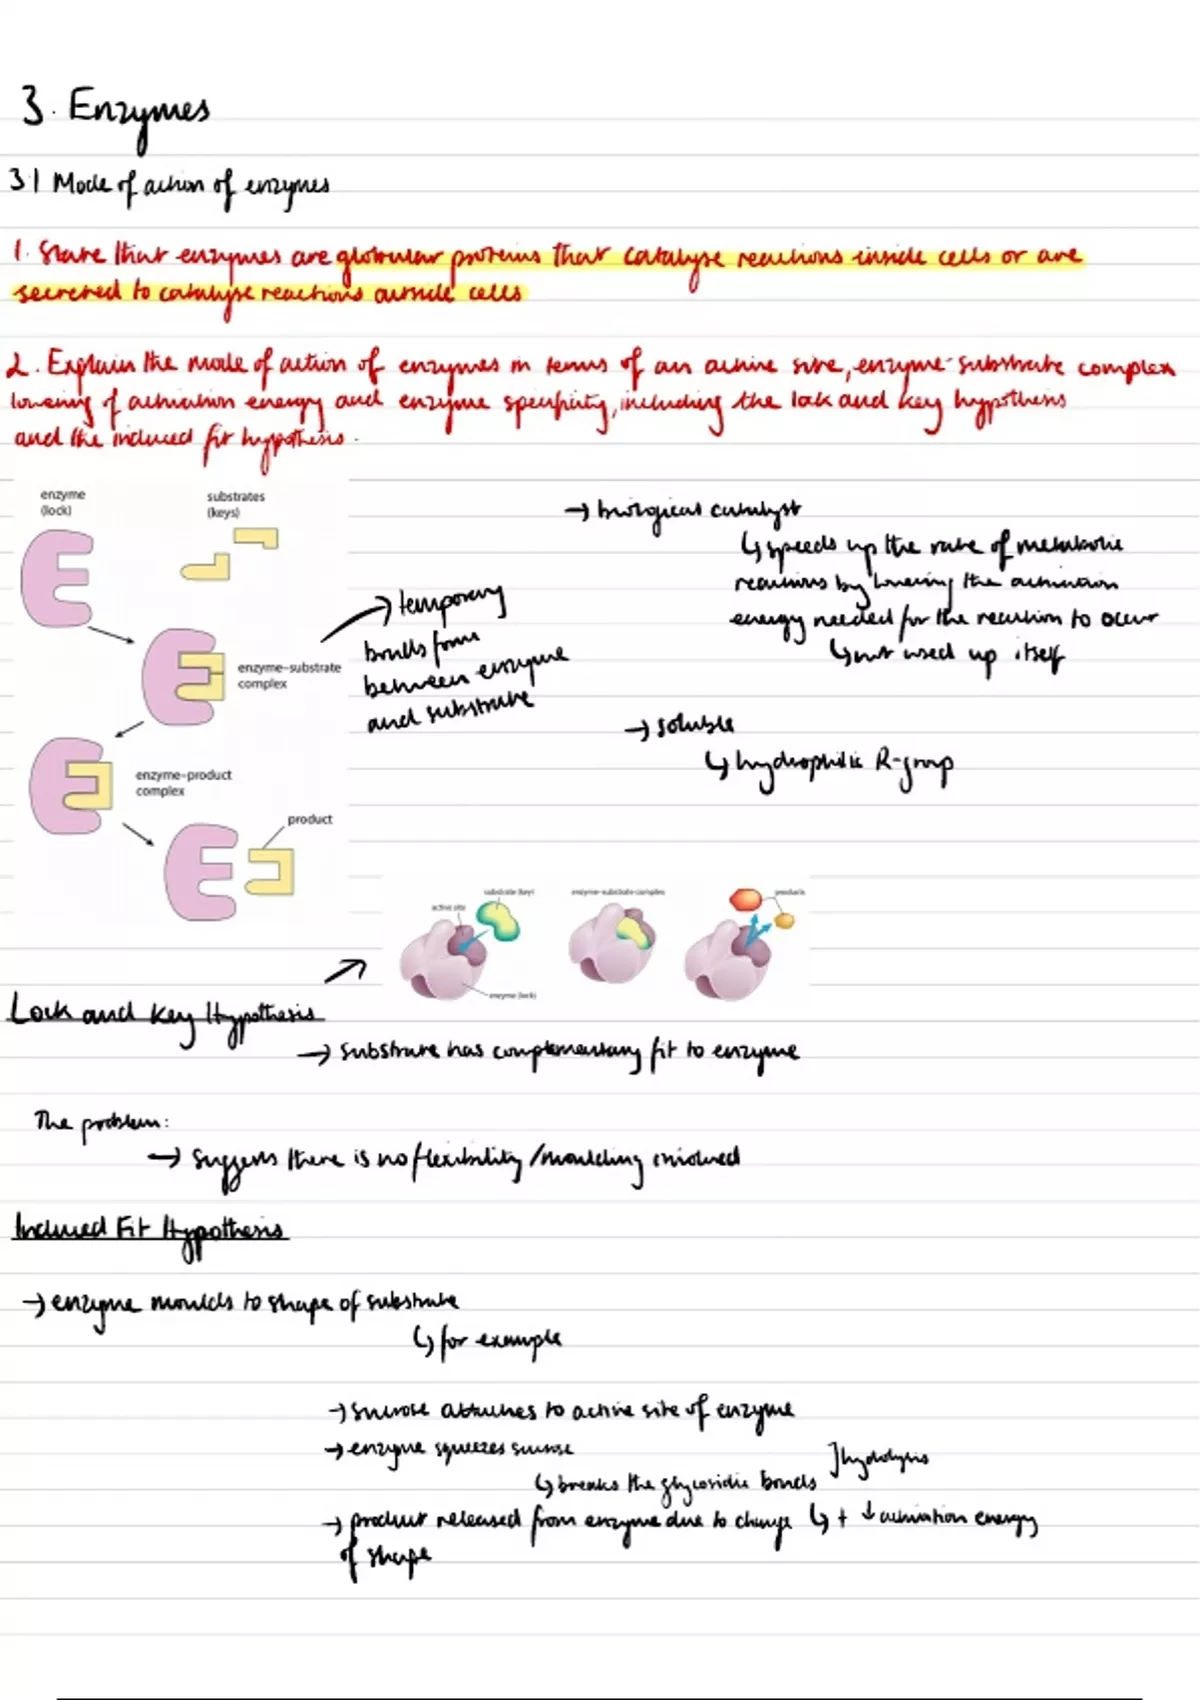 3. Enzymes
3.1 Mode of action of enzymes
1. State that enzymes are globular proteins that catalyse reactions inside cells or are
secreted to catalyse reactions outside cells
2. Explain the mode of action of enzymes in terms of an active site, enzyme-substrate complex
lowering of activation energy and enzyme specificity, including the lock and key hypothesis
and the induced fit hypothesis.
enzyme
(lock)
substrates
(keys)
enzyme–substrate
complex
enzyme–product
complex
product
→ temporary
bonds form
between enzyme
and substrate
→ biological catalyst
↳ speeds up the rate of metabolic
reactions by lowering the activation
energy needed for the reaction to occur
↳ not used up itself
→ soluble
↳ hydrophilic R-group
substrate (key)
active site
enzyme (lock)
enzyme–substrate complex
products
Lock and Key Hypothesis
→ substrate has complementary fit to enzyme
The problem:
→ suggests there is no flexibility/moulding involved
Induced Fit Hypothesis
→ enzyme moulds to shape of substrate
↳ for example
→ sucrose attaches to active site of enzyme
→ enzyme squeezes sucrose
↳ breaks the glycosidic bonds
] hydolysis
→ product released from enzyme due to change
of shape
↳ + ↓ activation energy